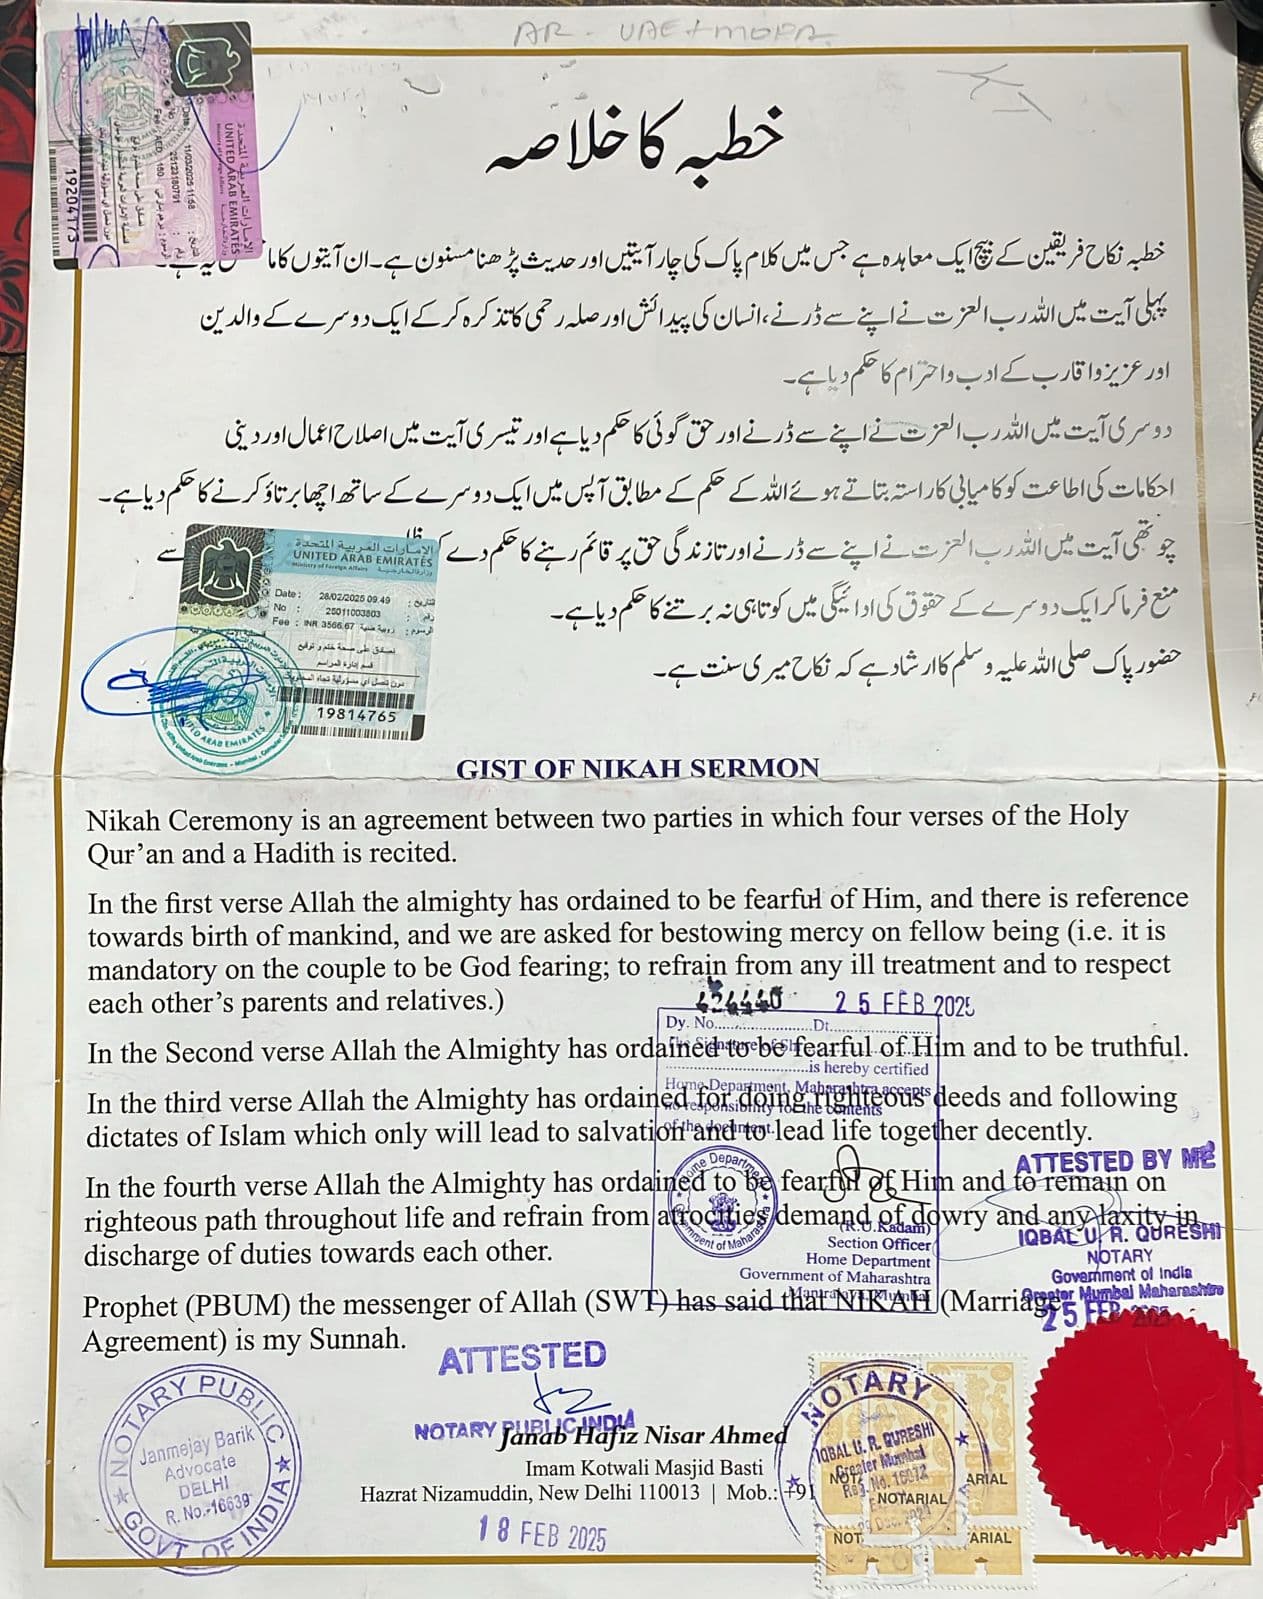 AR - UAE + MOFA
الامارات العربية المتحدة
UNITED ARAB EMIRATES
Ministry of Foreign Affairs
Date : 11/03/2025 11:58
No : 25123180791
Fee : AED 150
19204173
خطبہ کا خلاصہ
خطبہ نکاح فریقین کے بیچ ایک معاہدہ ہے جس میں کلام پاک کی چار آیتیں اور حدیث پڑھنا مسنون ہے۔ ان آیتوں کا ما
پہلی آیت میں اللہ رب العزت نے اپنے سے ڈرنے، انسان کی پیدائش اور صلہ رحمی کا تذکرہ کر کے ایک دوسرے کے والدین
اور عزیز و اقارب کے ادب و احترام کا حکم دیا ہے۔
دوسری آیت میں اللہ رب العزت نے اپنے سے ڈرنے اور حق گوئی کا حکم دیا ہے اور تیسری آیت میں اصلاح اعمال اور دینی
احکامات کی اطاعت کو کامیابی کا راستہ بتاتے ہوئے اللہ کے حکم کے مطابق آپس میں ایک دوسرے کے ساتھ اچھا برتاؤ کرنے کا حکم دیا ہے۔
چوتھی آیت میں اللہ رب العزت نے اپنے سے ڈرنے اور تا زندگی حق پر قائم رہنے کا حکم دے کر سے
منع فرما کر ایک دوسرے کے حقوق کی ادائیگی میں کوتاہی نہ برتنے کا حکم دیا ہے۔
حضور پاک صلی اللہ علیہ وسلم کا ارشاد ہے کہ نکاح میری سنت ہے۔
الامارات العربية المتحدة
UNITED ARAB EMIRATES
Ministry of Foreign Affairs وزارة الخارجية
Date : 28/02/2025 09:49 : التاريخ
No : 25011003803 : رقم
Fee : INR 3566.67 روبية هندية : الرسوم
نصادق على صحة ختم و توقيع
قسم إدارة المراسم
دون تحمل أي مسؤولية تجاه المحتويات
19814765
UNITED ARAB EMIRATES
GIST OF NIKAH SERMON
Nikah Ceremony is an agreement between two parties in which four verses of the Holy
Qur’an and a Hadith is recited.
In the first verse Allah the almighty has ordained to be fearful of Him, and there is reference
towards birth of mankind, and we are asked for bestowing mercy on fellow being (i.e. it is
mandatory on the couple to be God fearing; to refrain from any ill treatment and to respect
each other’s parents and relatives.)
25 FEB 2025
Dy. No. Dt.
In the Second verse Allah the Almighty has ordained to be fearful of Him and to be truthful.
is hereby certified
Home Department, Maharashtra accepts
In the third verse Allah the Almighty has ordained for doing righteous deeds and following
no responsibility for the contents
of the document.
dictates of Islam which only will lead to salvation and to lead life together decently.
Home Department
Government of Maharashtra
ATTESTED BY ME
In the fourth verse Allah the Almighty has ordained to be fearful of Him and to remain on
righteous path throughout life and refrain from atrocities demand of dowry and any laxity in
discharge of duties towards each other.
(R. U. Kadam)
Section Officer
Home Department
Government of Maharashtra
Mantralaya, Mumbai
IQBAL U. R. QURESHI
NOTARY
Government of India
Greater Mumbai Maharashtra
25 FEB 2025
Prophet (PBUM) the messenger of Allah (SWT) has said that NIKAH (Marriage
Agreement) is my Sunnah.
ATTESTED
NOTARY PUBLIC INDIA
Janab Hafiz Nisar Ahmed
Imam Kotwali Masjid Basti
Hazrat Nizamuddin, New Delhi 110013 | Mob.: +91
18 FEB 2025
NOTARY PUBLIC
Janmejay Barik
Advocate
DELHI
R. No.-16639
GOVT. OF INDIA
NOTARY
IQBAL U. R. QURESHI
Greater Mumbai
NOTARIAL
ARIAL
NOT
ARIAL